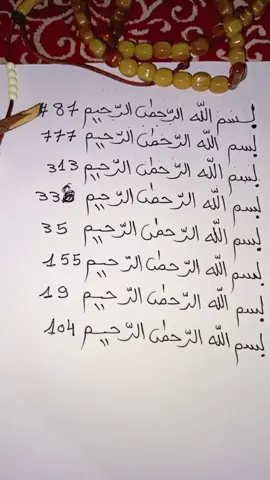 بسم الله الرحمٰن الرّحيم 787
بسم الله الرّحمٰن الرّحيم 777
بسم الله الرّحمٰن الرّحيم 313
بسم الله الرّحمٰن الرّحيم 336
بسم الله الرّحمٰن الرّحيم 35
بسم الله الرّحمٰن الرّحيم 155
بسم الله الرّحمٰن الرّحيم 19
بسم الله الرّحمٰن الرّحيم 104